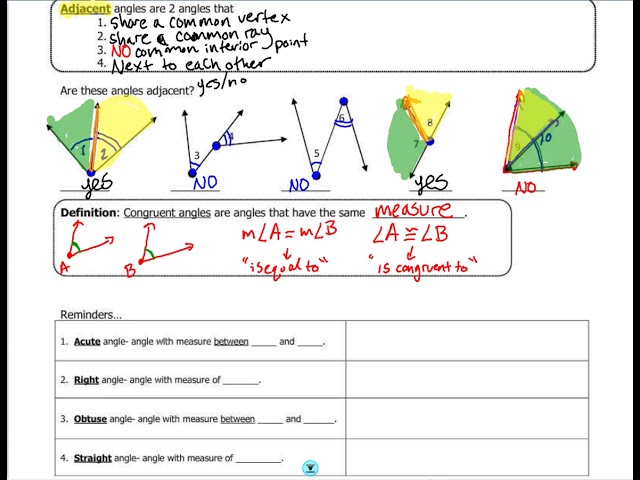 Adjacent angles are 2 angles that
1. share a common vertex
2. share a common ray
3. NO common interior point
4. Next to each other
Are these angles adjacent? yes/no
1 2 3 4 5 6 7 8 9 10
yes NO NO yes NO
Definition: Congruent angles are angles that have the same measure.
A B m∠A = m∠B ∠A ≅ ∠B
"is equal to" "is congruent to"
Reminders...
1. Acute angle- angle with measure between _____ and _____.
2. Right angle- angle with measure of _______.
3. Obtuse angle- angle with measure between _____ and ______.
4. Straight angle- angle with measure of _________.